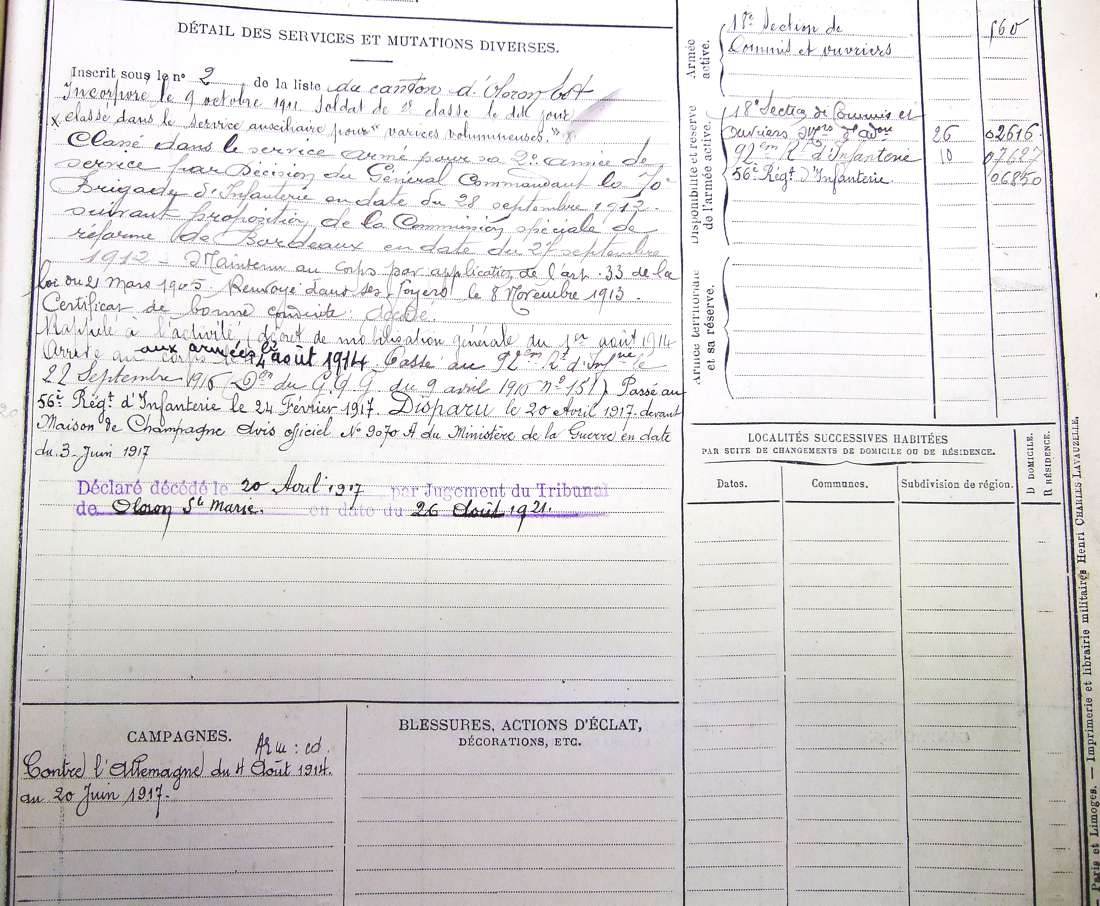 DÉTAIL DES SERVICES ET MUTATIONS DIVERSES.
Inscrit sous le nº 2 de la liste du canton d'Oloron Est
Incorporé le 9 octobre 1911 Soldat de 2e classe le dit jour
x classé dans le service auxiliaire pour "varices volumineuses." x
Classé dans le service armé pour sa 2e année de
service par Décision du Général Commandant la 70e
Brigade d'Infanterie en date du 28 septembre 1912.
suivant proposition de la Commission spéciale de
réforme de Bordeaux en date du 27 septembre
1912 - Maintenu au corps par application de l'art. 33 de la
loi du 21 Mars 1905. Renvoyé dans ses foyers le 8 Novembre 1913.
Certificat de bonne conduite:
Rappelé à l'activité (décret de mobilisation générale du 1er août 1914
Arrivé au corps le 4 août 1914. Passé au 92em Rt d'Infrie le
aux armées le
22 Septembre 1916 (Don du G.Q.G. du 9 avril 1915 nº 151) Passé au
56e Régt d'Infanterie le 24 Février 1917. Disparu le 20 Avril 1917. devant
Maison de Champagne avis officiel Nº 9070 A du Ministère de la Guerre en date
du 3 Juin 1917
Déclaré décédé le 20 Avril 1917 par Jugement du Tribunal
de Oloron Ste Marie. en date du 26 Août 1921.
CAMPAGNES.
Contre l'Allemagne du 4 Août 1914.
au 20 Juin 1917.
BLESSURES, ACTIONS D'ÉCLAT,
DÉCORATIONS, ETC.
Armée
active.
18e Section de
Commis et ouvriers
560
Disponibilité et réserve
de l'armée active.
18e Section de Commis et
ouvriers 26 02616
92em Rt d'Infanterie 10 07687
56e Régt d'Infanterie. 06850
Armée territoriale
et sa réserve.
LOCALITÉS SUCCESSIVES HABITÉES
PAR SUITE DE CHANGEMENTS DE DOMICILE OU DE RÉSIDENCE.
Dates.
Communes.
Subdivision de région.
D DOMICILE.
R RÉSIDENCE.
Paris et Limoges. — Imprimerie et librairie militaires Henri CHARLES-LAVAUZELLE.